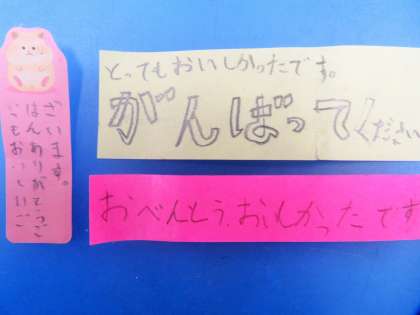 いつもおいしいご
はんありがとうご
ざいます。
とってもおいしかったです。
がんばってください
おべんとう、おいしかったです